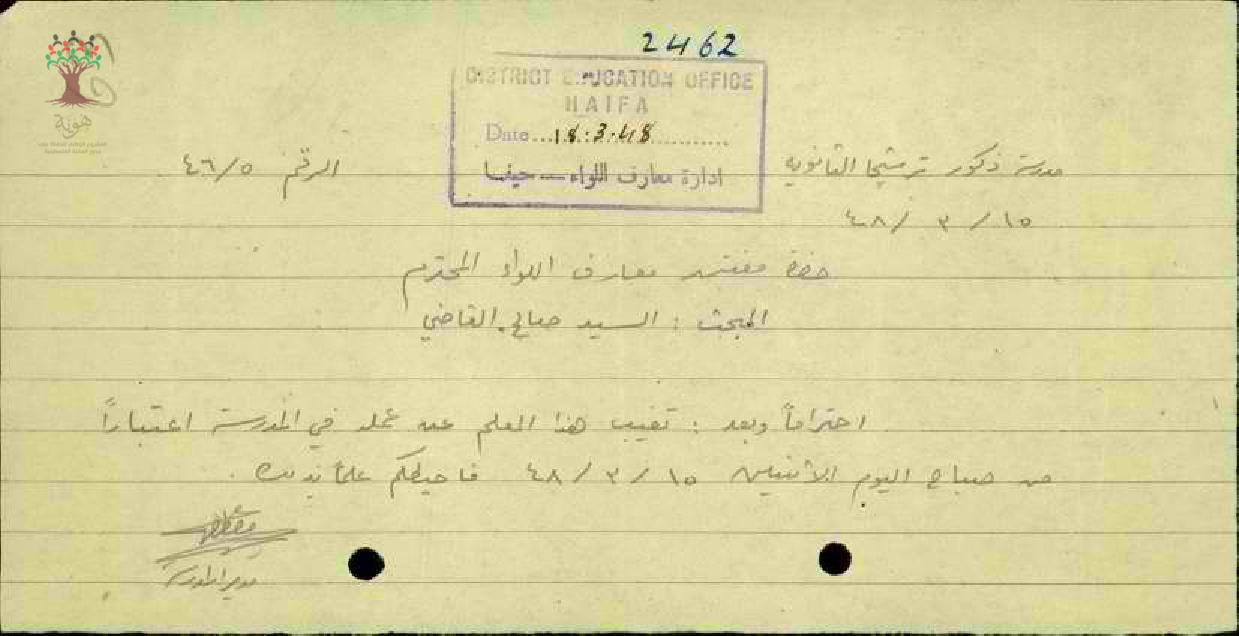 2462
DISTRICT EDUCATION OFFICE
HAIFA
Date...18.3.48
ادارة معارف اللواء — حيفا
مدرسة ذكور ترشيحا الثانويه
الرقم ٤٦/٥
١٥/ ٣ /٤٨
حضرة مفتش معارف اللواء المحترم
المبحث : السيد صالح القاضي
احتراماً وبعد : تغيب هذا المعلم عن عمله في المدرسة اعتباراً
من صباح اليوم الاثنين ١٥/ ٣ /٤٨ فاحيطكم علماً بذلك .
مدير المدرسة
هوية